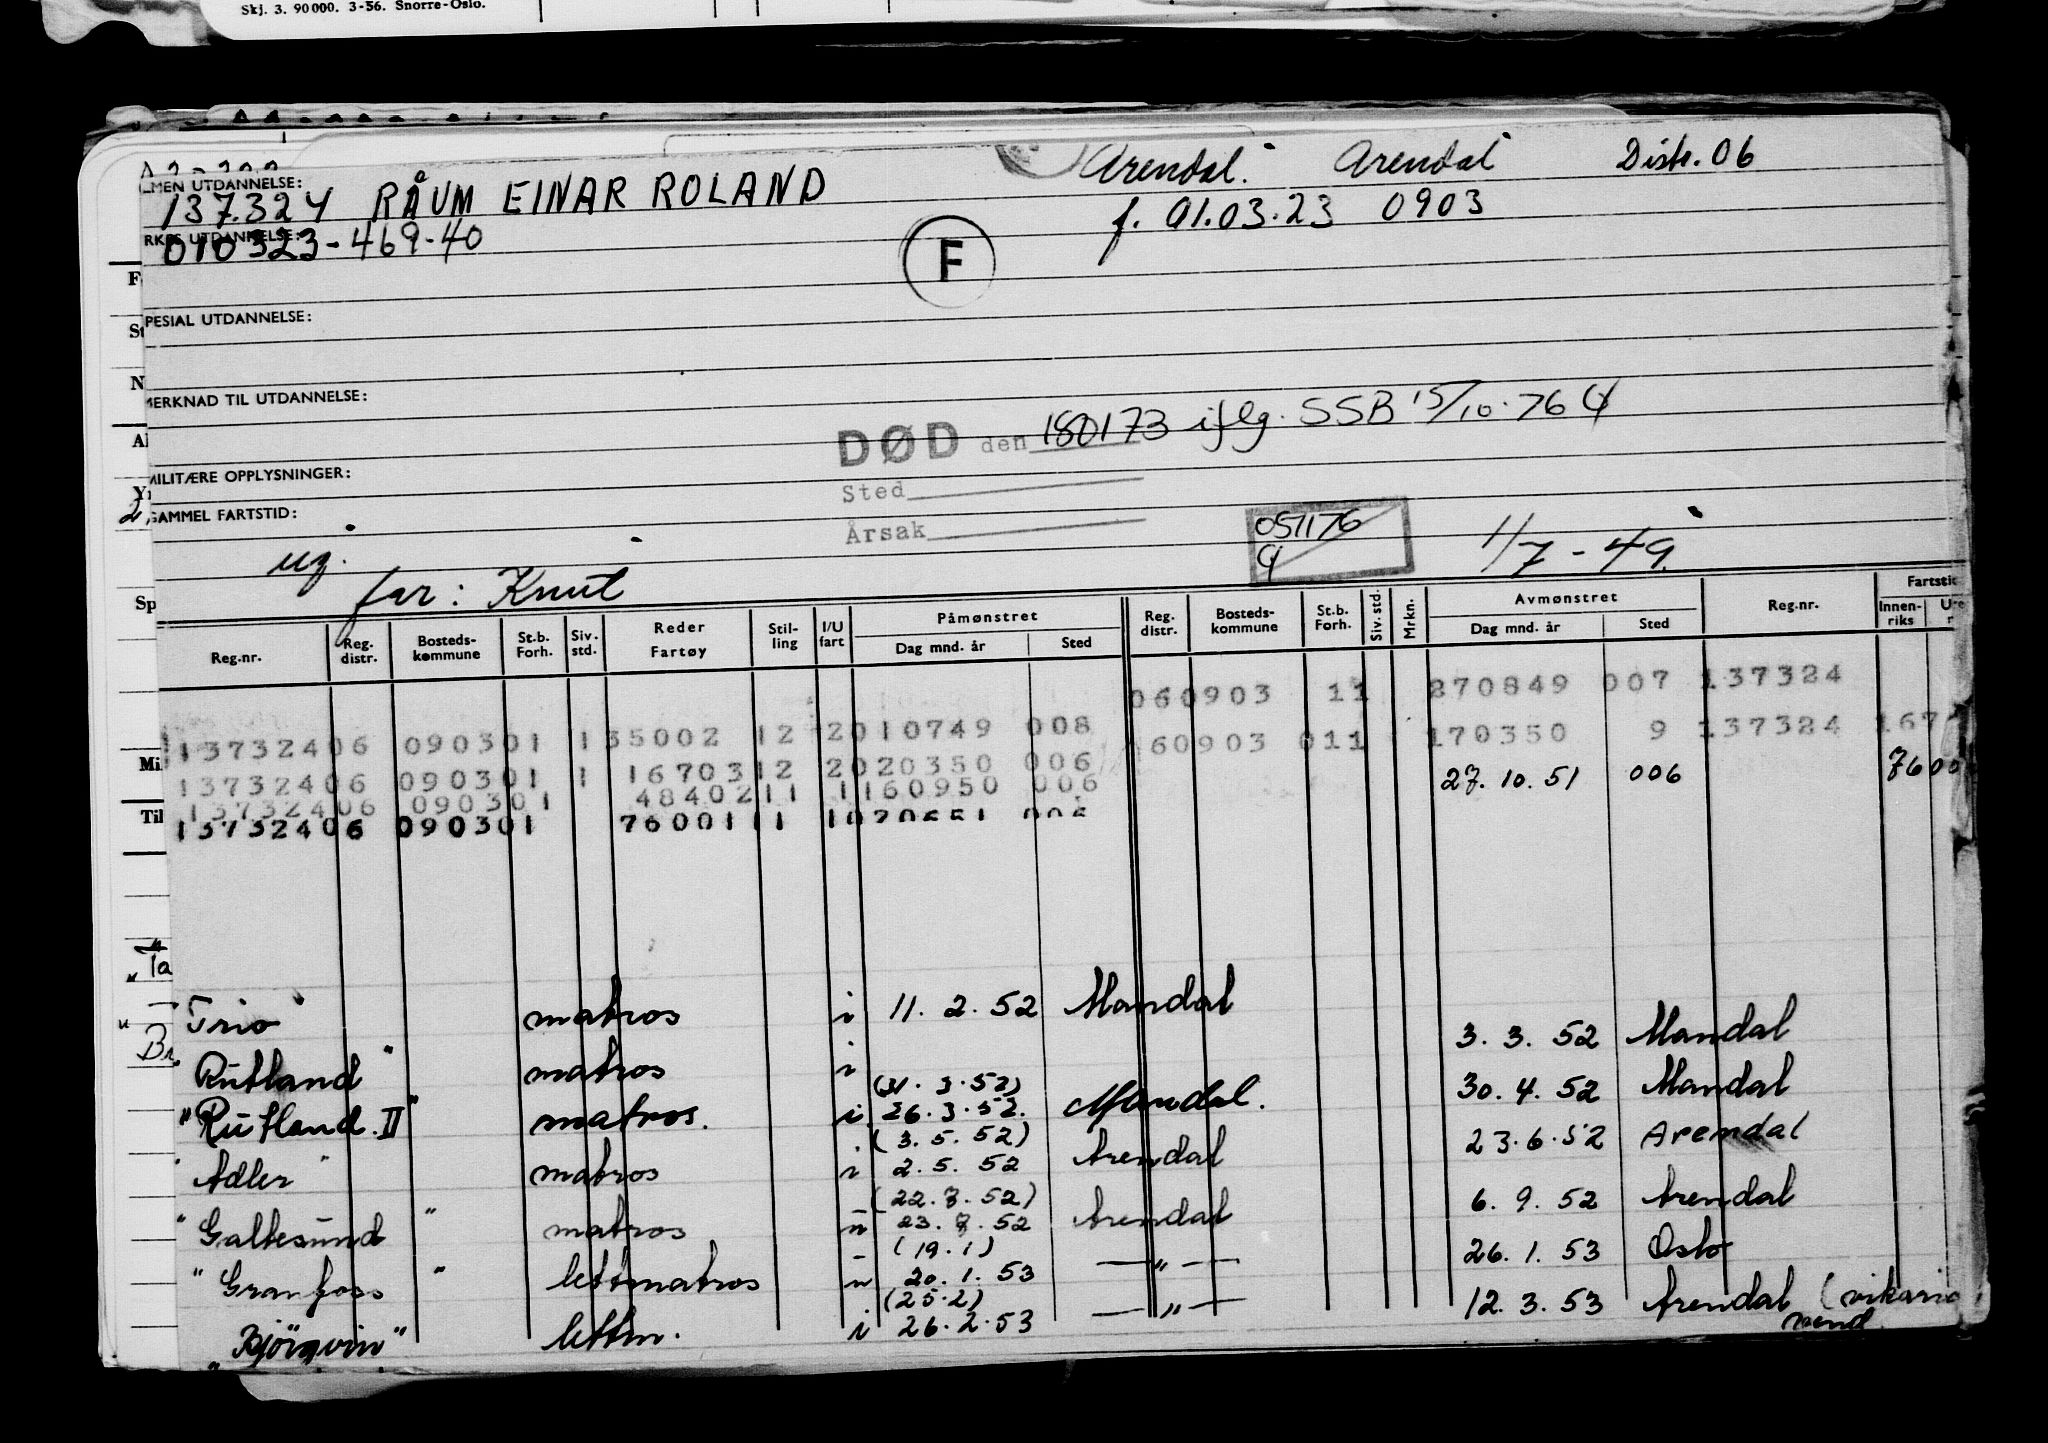 Skj. 3. 90000. 3-56. Snorre-Oslo.
Arendal. Arendal Distr. 06
MEN UTDANNELSE:
137.324 RÅUM EINAR ROLAND
f. 01.03.23 0903
UTDANNELSE:
010323-469-40
F
PESIAL UTDANNELSE:
MERKNAD TIL UTDANNELSE:
DØD den 180173 iflg. SSB 15/10.76
MILITÆRE OPPLYSNINGER:
Sted
GAMMEL FARTSTID:
Årsak
051176
1/7-49.
ug.
far: Knut
Reg.nr. Reg. distr. Bosteds-kommune St.b. Forh. Siv. std. Reder Fartøy Stil-ling I/U fart Påmønstret Dag mnd. år Sted Reg. distr. Bosteds-kommune St.b. Forh. Siv. std. Mrkn. Avmønstret Dag mnd. år Sted Reg.nr. Fartstid Innen-riks
060903 11 270849 007 137324
13732406 090301 135002 12 2010749 008
60903 011 170350 9 137324 167
13732406 090301 1 1670312 2020350 006
27.10.51 006 7600
13732406 090301 4840211 1160950 006
13732406 090301 7600111
"Trio" matros i 11. 2. 52 Mandal
3. 3. 52 Mandal
Rutland" matros i
(31. 3. 52)
30. 4. 52 Mandal
"Rutland II" matros. i 26. 3. 52. Mandal.
(3. 5. 52)
23. 6. 52 Arendal
"Adler" matros i 2. 5. 52 Arendal
6. 9. 52 Arendal
"Galtesund" matros 52 Arendal
(19.1)
26. 1. 53 Oslo
"Granfoss" lettmatros 20. 1. 53 — " —
(25.2)
12. 3. 53 Arendal
"Björgvin" lettm. i 26. 2. 53 — " —